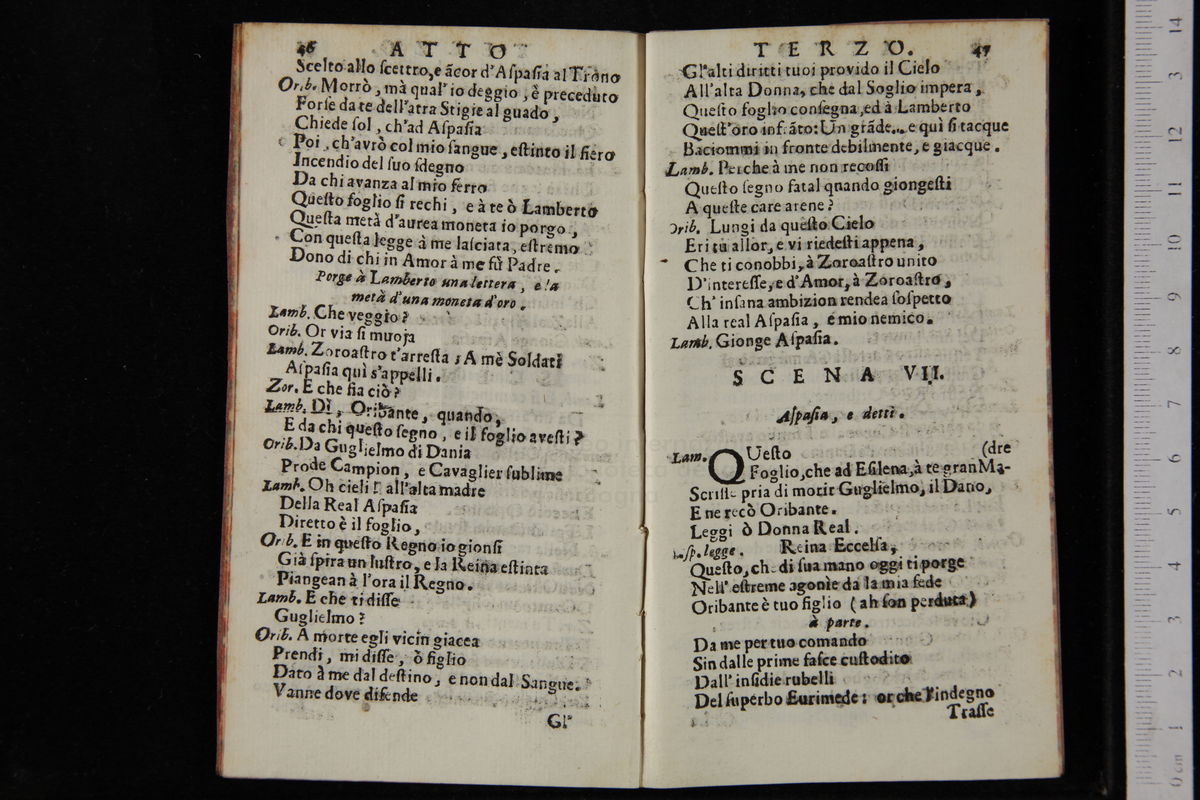 46 ATTO
Scelto allo scettro, e ācor d'Aspasia al Trono
Orib. Morrò, mà qual' io deggio, è preceduto
Forse da te dell'atra Stigie al guado,
Chiede sol, ch'ad Aspasia
Poi, ch'avrò col mio sangue, estinto il fiero
Incendio del suo sdegno
Da chi avanza al mio ferro
Questo foglio si rechi, e à te ò Lamberto
Questa metà d'aurea moneta io porgo,
Con questa legge à me lasciata, estremo
Dono di chi in Amor à me fù Padre.
Porge à Lamberto una lettera, e la
metà d'una moneta d'oro.
Lamb. Che veggio?
Orib. Or via si muoja
Lamb. Zoroastro t'arresta; A mè Soldati
Aspasia quì s'appelli.
Zor. E che fia ciò?
Lamb. Dì, Oribante, quando,
E da chi questo segno, e il foglio avesti?
Orib. Da Guglielmo di Dania
Prode Campion, e Cavaglier sublime
Lamb. Oh cieli! all'alta madre
Della Real Aspasia
Diretto è il foglio,
Orib. E in questo Regno io gionsi
Già spira un lustro, e la Reina estinta
Piangean à l'ora il Regno.
Lamb. E che ti disse
Guglielmo?
Orib. A morte egli vicin giacea
Prendi, mi disse, ò figlio
Dato à me dal destino, e non dal Sangue.
Vanne dove difende
Gl'
TERZO. 47
Gl'alti diritti tuoi provido il Cielo
All'alta Donna, che dal Soglio impera,
Questo foglio consegna, ed à Lamberto
Quest'oro infrāto: Un grāde... e quì si tacque
Baciommi in fronte debilmente, e giacque.
Lamb. Perche à me non recossi
Questo segno fatal quando giongesti
A queste care arene?
Orib. Lungi da questo Cielo
Eri tù allor, e vi riedesti appena,
Che ti conobbi, à Zoroastro unito
D'interesse, e d'Amor, à Zoroastro,
Ch' insana ambizion rendea sospetto
Alla real Aspasia, e mio nemico.
Lamb. Gionge Aspasia.
SCENA VII.
Aspasia, e detti.
Lam. QUesto (dre
Foglio, che ad Esilena, à te gran Ma-
Scrisse pria di morir Guglielmo, il Dano,
E ne recò Oribante.
Leggi ò Donna Real.
Asp. legge. Reina Eccelsa,
Questo, che di sua mano oggi ti porge
Nell' estreme agonìe da la mia fede
Oribante è tuo figlio (ah son perduta)
à parte.
Da me per tuo comando
Sin dalle prime fasce custodito
Dall' insidie rubelli
Del superbo Eurimede: or che l'indegno
Trasse